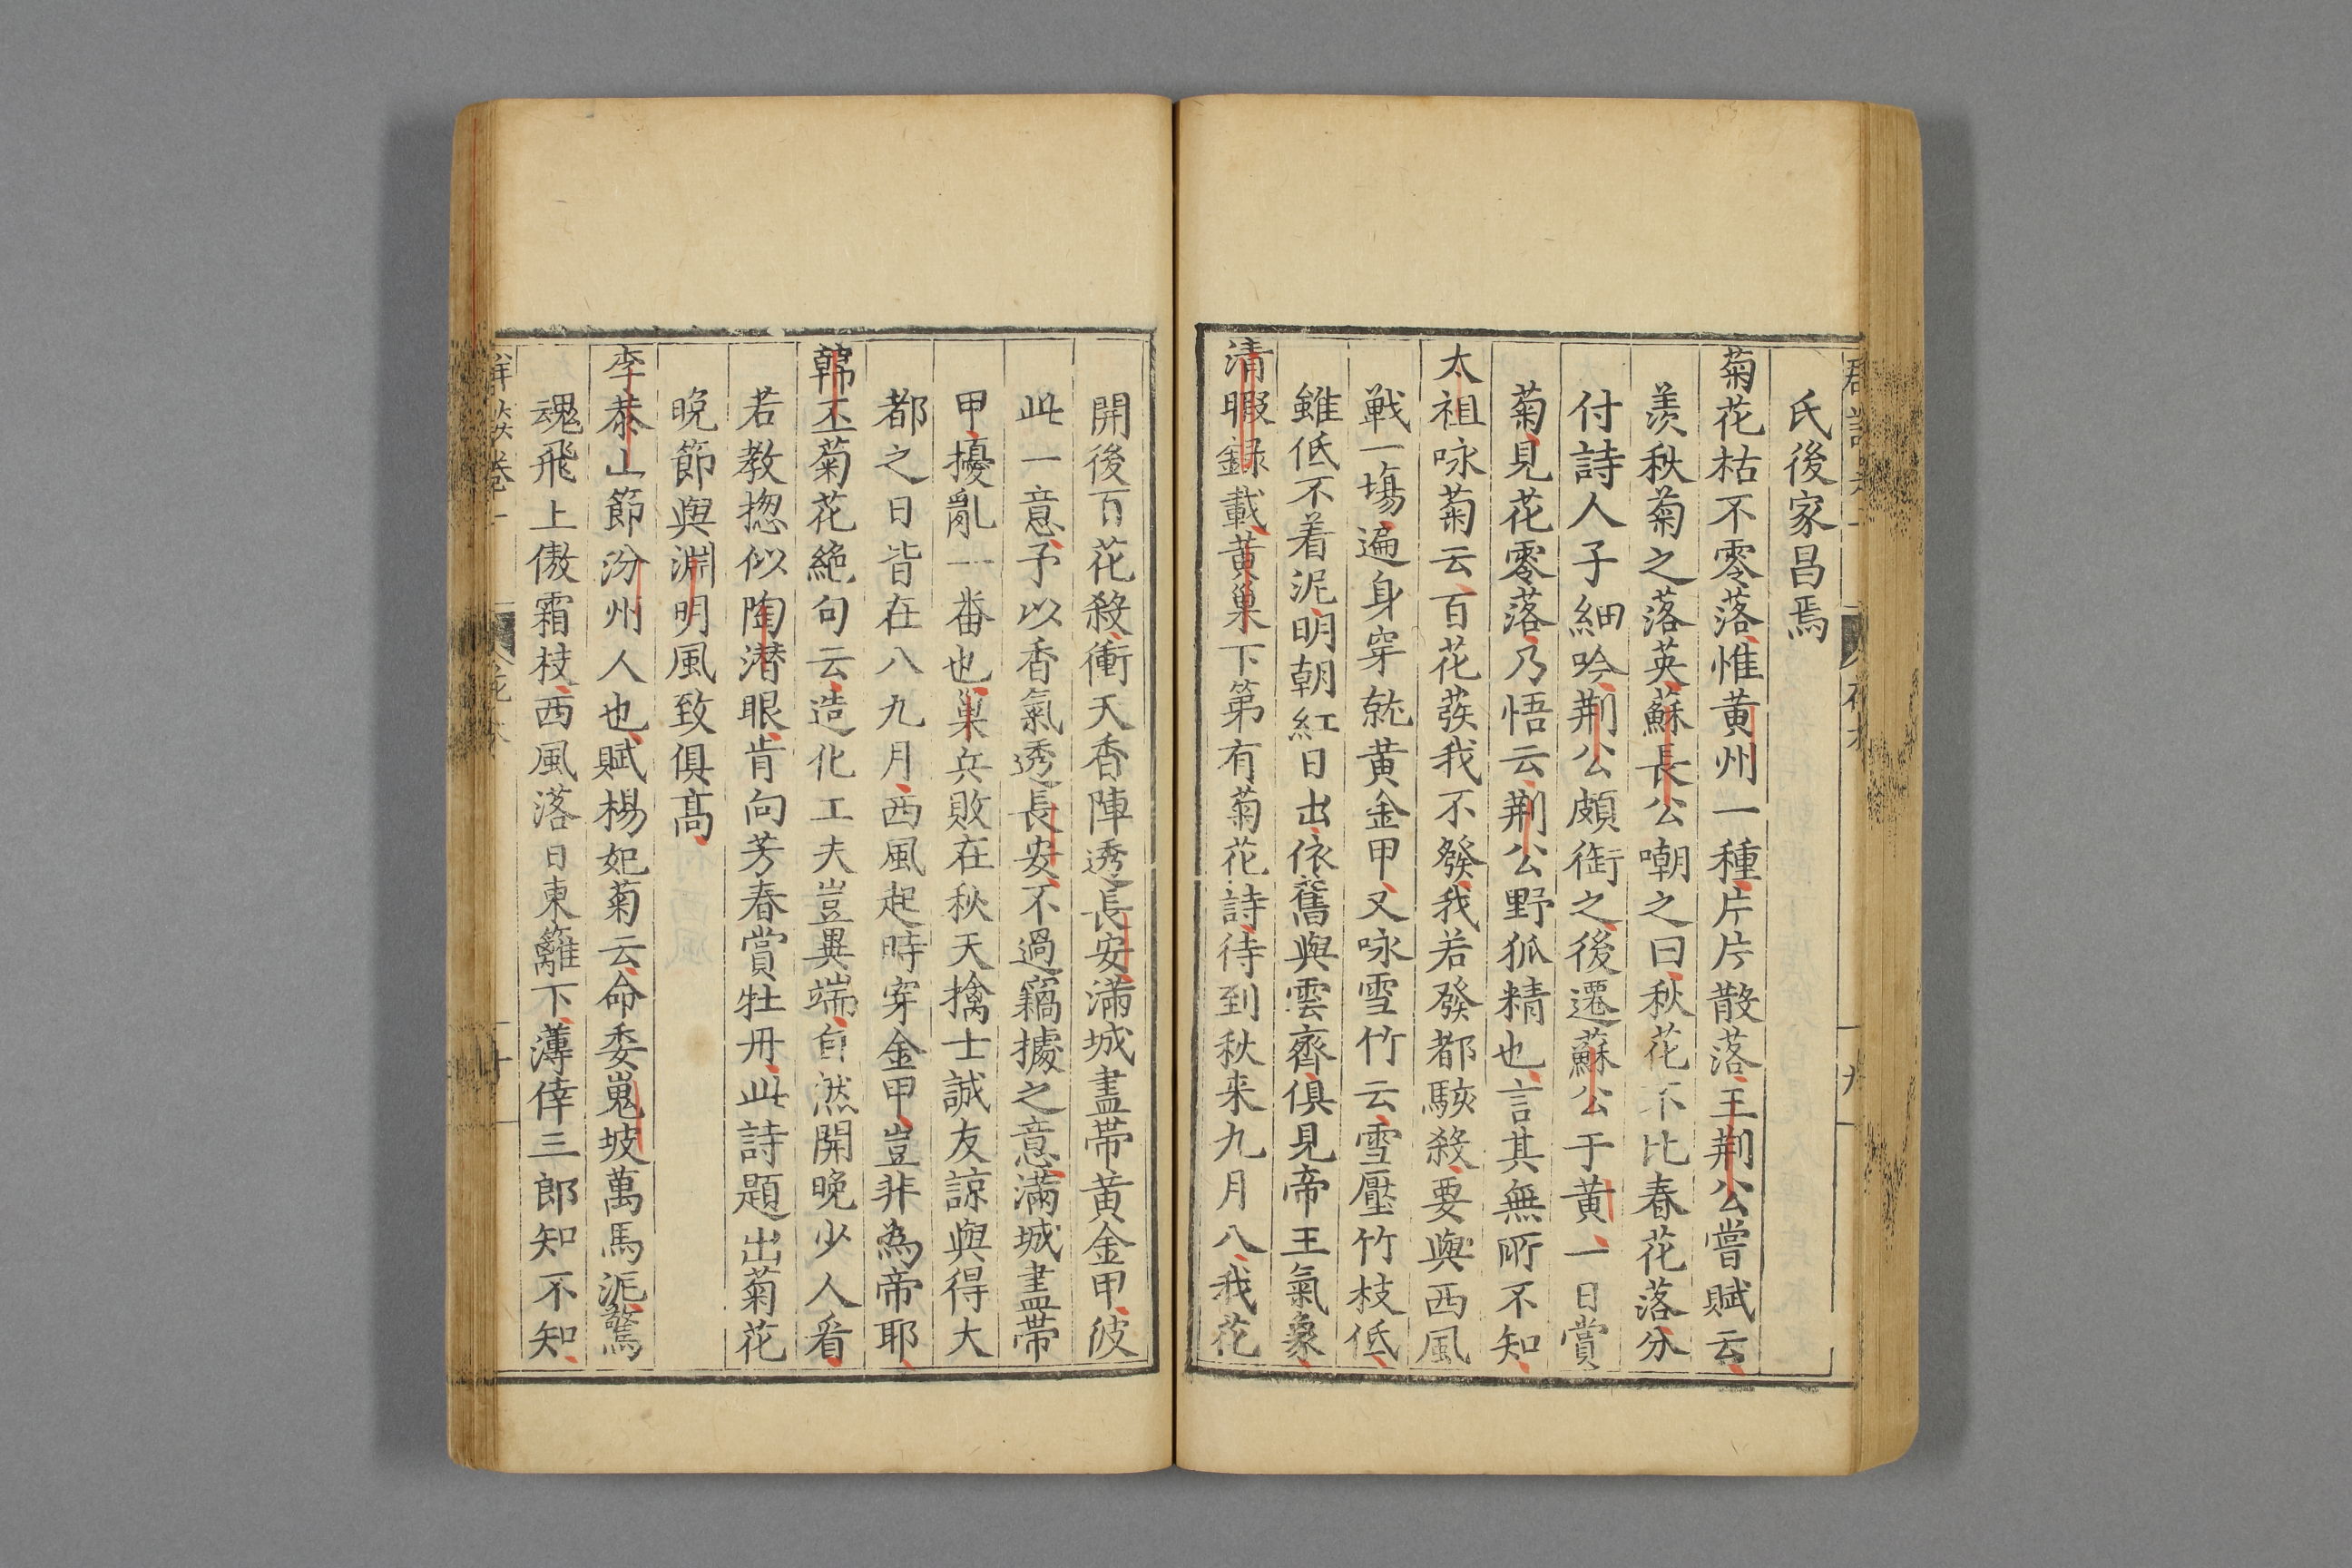 氏後家昌焉
菊花枯不零落惟黄州一種片片散落王荆公嘗賦云
羨秋菊之落英蘇長公嘲之曰秋花不比春花落分
付詩人子細吟荆公頗銜之後遷蘇公于黄一日賞
菊見花零落乃悟云荆公野狐精也言其無所不知
太祖咏菊云百花蕟我不發我若發都駭殺要與西風
戰一塲遍身穿就黄金甲又咏雪竹云雪壓竹枝低
雖低不着泥明朝紅日出依舊與雲齊俱見帝王氣象
清暇録載黄巢下第有菊花詩待到秋来九月八我花
開後百花殺衝天香陣透長安滿城盡帶黄金甲彼
此一意予以香氣透長安不過竊據之意滿城盡帶
甲擾亂一番也巢兵敗在秋天擒士誠友諒與得大
都之日皆在八九月西風起時穿金甲豈非為帝耶
韓丕菊花絶句云造化工夫豈異端自然開晚少人看
若教揔似陶潜眼肯向芳春賞牡丹此詩題出菊花
晚節與淵明風致俱高
李恭山節汾州人也賦楊妃菊云命委嵬坡萬馬泥驚
魂飛上傲霜枝西風落日東籬下薄倖三郎知不知